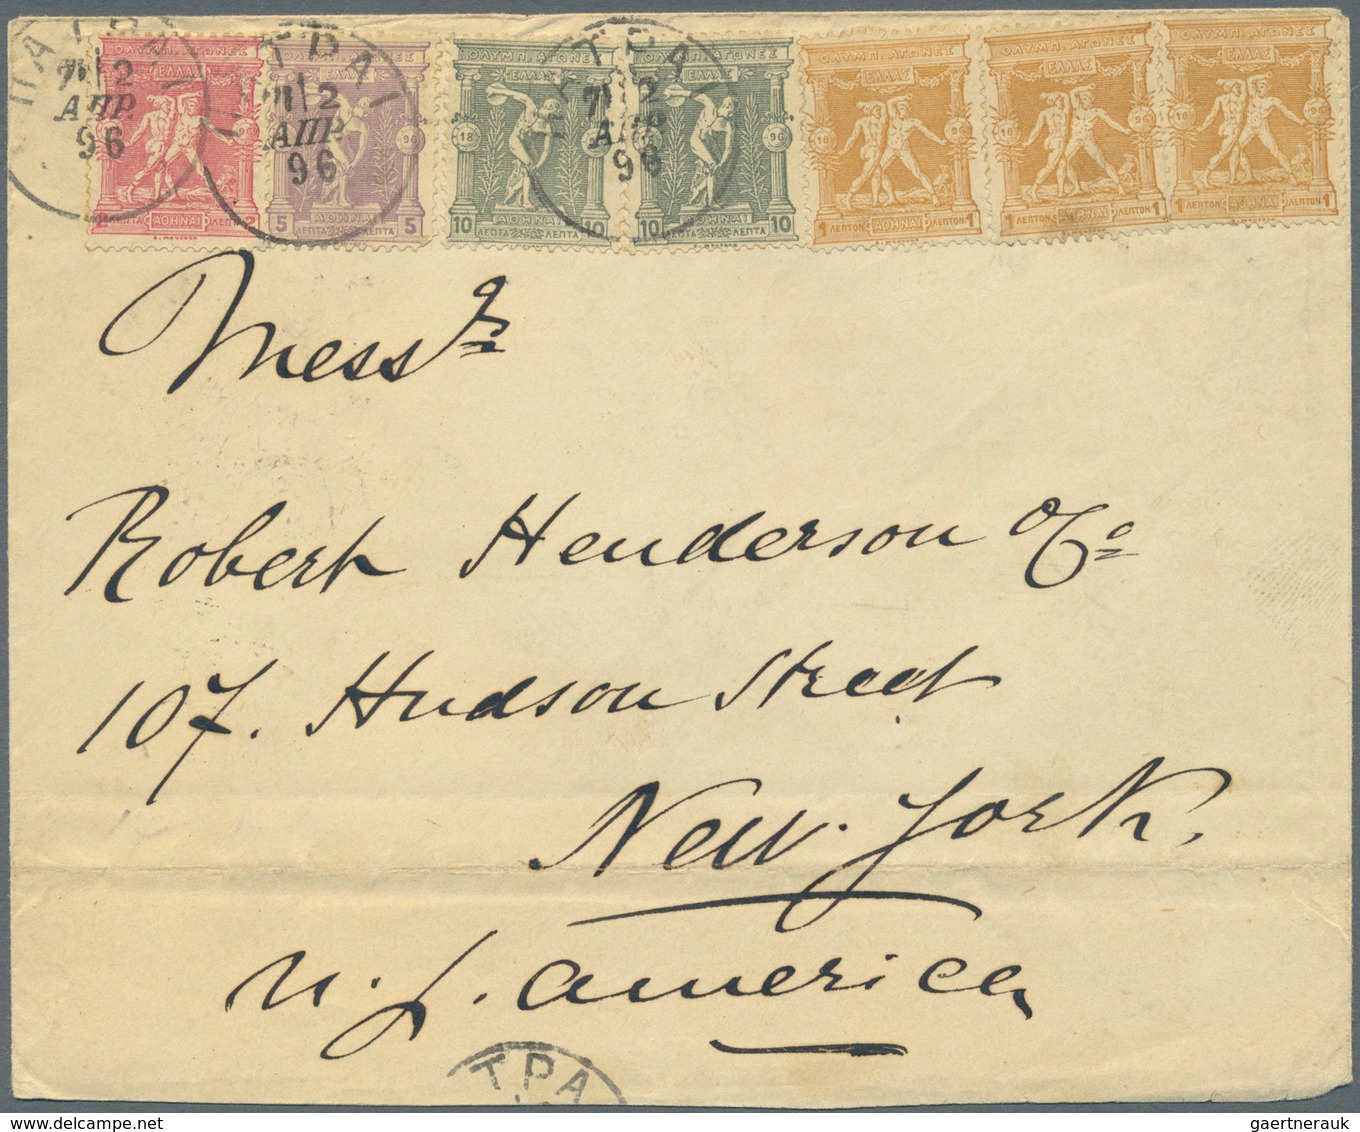 ΠΑΤΡΑΙ ΠΑΤΡΑΙ ΠΑΤΡΑΙ
ΟΛΥΜΠ. ΑΓΩΝΕΣ ΟΛΥΜΠ. ΑΓΩΝΕΣ ΟΛΥΜΠ. ΑΓΩΝΕΣ ΟΛΥΜΠ. ΑΓΩΝΕΣ ΟΛΥΜΠ. ΑΓΩΝΕΣ ΟΛΥΜΠ. ΑΓΩΝΕΣ ΟΛΥΜΠ. ΑΓΩΝΕΣ
ΕΛΛΑΣ ΕΛΛΑΣ ΕΛΛΑΣ ΕΛΛΑΣ ΕΛΛΑΣ
ΑΠΡ. ΑΠΡ. ΑΠΡ.
96 96 96
18 96 18 96 18 96 18 96 18 96
2 ΛΕΠΤΑ ΑΘΗΝΑΙ ΛΕΠΤΑ 5 ΛΕΠΤΑ ΑΘΗΝΑΙ ΛΕΠΤΑ 5 10 ΛΕΠΤΑ ΑΘΗΝΑΙ ΛΕΠΤΑ 10 10 ΛΕΠΤΑ ΑΘΗΝΑΙ ΛΕΠΤΑ 10 1 ΛΕΠΤΟΝ ΑΘΗΝΑΙ ΛΕΠΤΟΝ 1 1 ΛΕΠΤΟΝ ΑΘΗΝΑΙ ΛΕΠΤΟΝ 1 1 ΛΕΠΤΟΝ ΑΘΗΝΑΙ ΛΕΠΤΟΝ 1
Messrs
Robert Henderson & Co
107. Hudson Street
New York.
U. S. America
ΤΡΑ
gaertnerauk